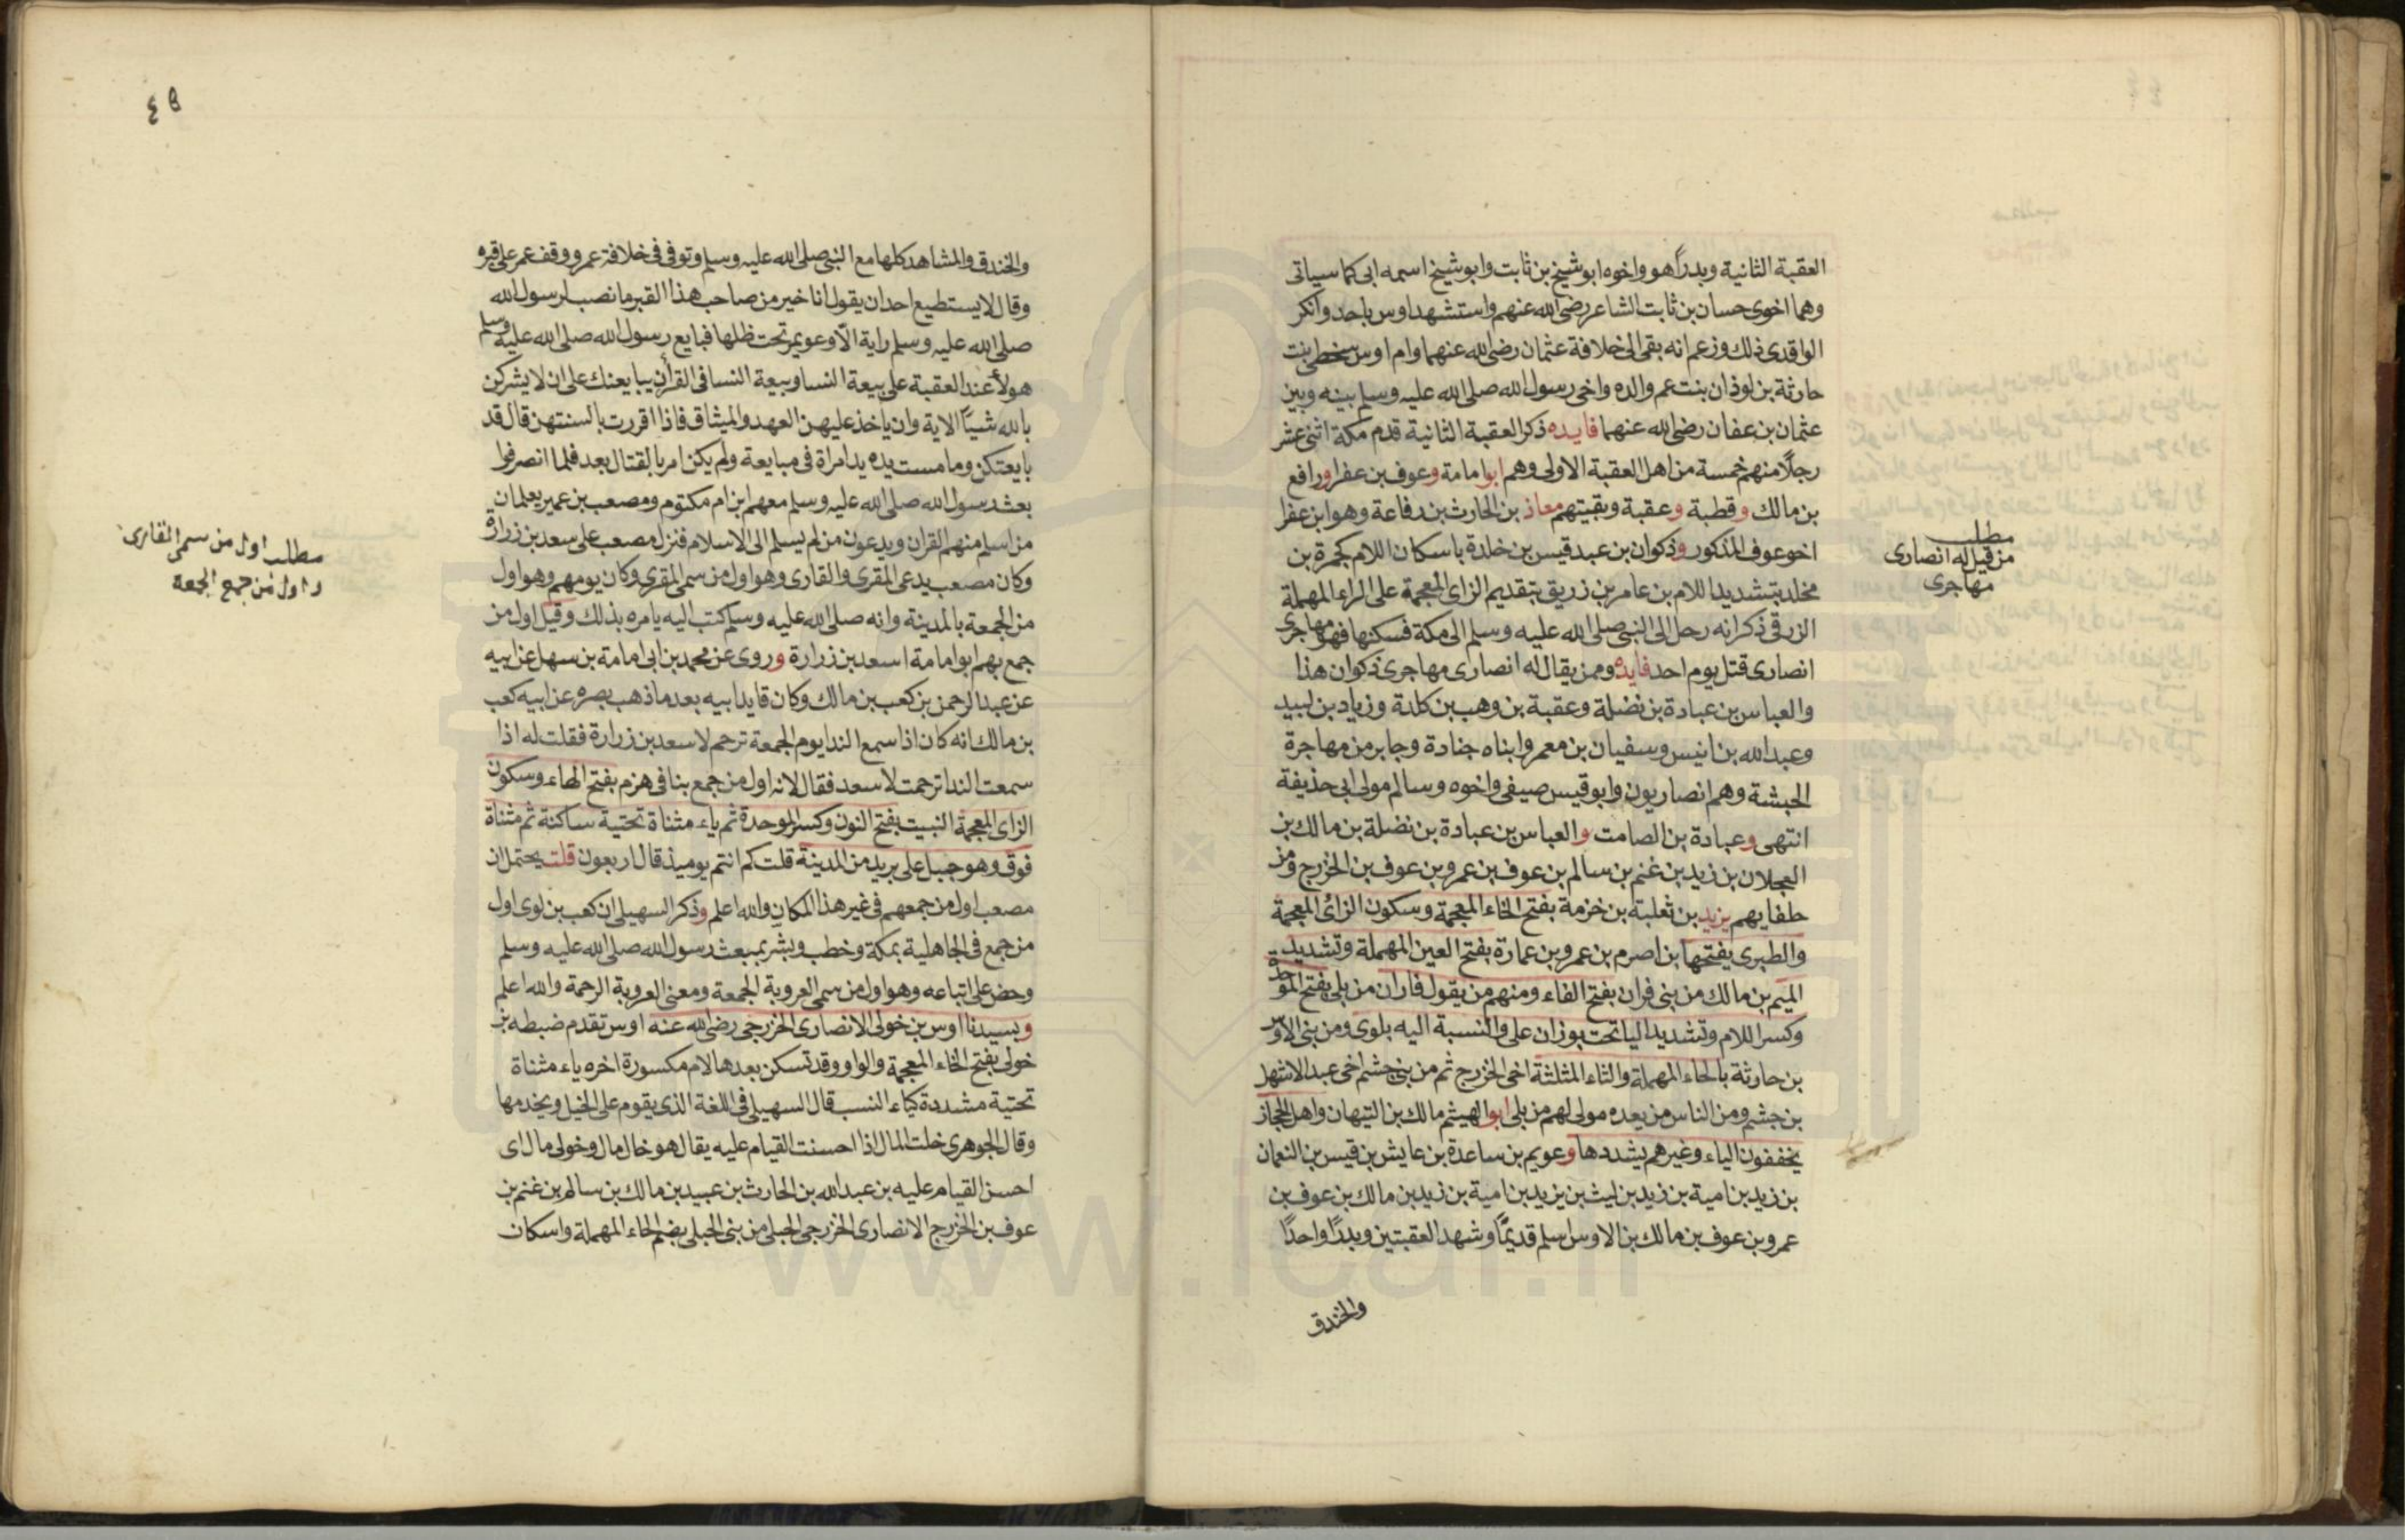 العقبة الثانية وبدراً هو واخوه ابو شيخ بن ثابت وابو شيخ اسمه ابى كما سياتى
وهما اخوى حسان بن ثابت الشاعر رضى الله عنهم واستشهد اوس باحد وانكر
الواقدى ذلك وزعم انه بقى الى خلافة عثمان رضى الله عنهما وام اوس سخطى بنت
حارثة بن لوذان بنت عم والده واخى رسول الله صلى الله عليه وسلم بينه وبين
عثمان بن عفان رضى الله عنهما فايده ذكر العقبة الثانية قدم مكة اثنى عشر
رجلاً منهم خمسة من اهل العقبة الاولى وهم ابوا مامة وعوف بن عفرا ورافع
بن مالك وقطبة وعقبة وبقيتهم معاذ بن الحارث بن رفاعة وهو ابن عفرا
اخو عوف المذكور وذكوان بن عبد قيس بن خلدة باسكان اللام كجمرة بن
مخلد بتشديد اللام بن عامر بن زريق بتقديم الزاى المعجمة على الراء المهملة
الزرقى ذكر انه رحل الى النبى صلى الله عليه وسلم الى مكة فسكنها فهو مهاجرى
انصارى قتل يوم احد فايده وممن يقال له انصارى مهاجرى ذكوان هذا
والعباس بن عبادة بن نضلة وعقبة بن وهب بن كلدة وزياد بن لبيد
وعبد الله بن انيس وسفيان بن معمر وابناه جنادة وجابر من مهاجرة
الحبشة وهم انصاريون وابو قيس صيفى واخوه وسالم مولى ابى حذيفة
انتهى وعبادة بن الصامت والعباس بن عبادة بن نضلة بن مالك بن
العجلان بن زيد بن غنم بن سالم بن عوف بن عمرو بن عوف بن الخزرج ومن
حلفايهم يزيد بن ثعلبة بن خزمة بفتح الخاء المعجمة وسكون الزاى المعجمة
والطبرى يفتحها بن اصرم بن عمرو بن عمارة بفتح العين المهملة وتشديد
الميم بن مالك من بنى فران بفتح الفاء ومنهم من يقول فاران من بلى بفتح الموحدة
وكسر اللام وتشديد اليا تحت بوزان على والنسبة اليه بلوى ومن بنى الاوس
بن حارثة بالحاء المهملة والثاء المثلثة اخى الخزرج ثم من بنى جشم اخى عبد الاشهل
بن جشم ومن الناس من يعده مولى لهم من بلى ابوا الهيثم مالك بن التيهان واهل الحجاز
يخففون الياء وغيرهم يشددها وعويم بن ساعدة بن عايش بن قيس بن النعمان
بن زيد بن امية بن زيد بن ليث بن يزيد بن امية بن زيد بن مالك بن عوف بن
عمرو بن عوف بن مالك بن الاوس اسلم قديمًا وشهد العقبتين وبدرًا واحدًا
والخندق
مطلب
من قيل له انصارى
مهاجرى
والخندق والمشاهد كلها مع النبى صلى الله عليه وسلم وتوفى فى خلافة عمر ووقف عمر على قبره
وقال لا يستطيع احد ان يقول انا خير من صاحب هذا القبر ما نصب لرسول الله
صلى الله عليه وسلم راية الّا وعويمر تحت ظلها فبايع رسول الله صلى الله عليه وسلم
هولاء عند العقبة على بيعة النسا وبيعة النسا فى القرأن يبايعنك على ان لا يشركن
بالله شيئًا الاية وان ياخذ عليهن العهد والميثاق فاذا اقررت بالسنتهن قال قد
بايعتكن وما مست يده يد امراة فى مبايعة ولم يكن امر بالقتال بعد فلما انصرفوا
بعث رسول الله صلى الله عليه وسلم معهم ابن ام مكتوم ومصعب بن عمير يعلمان
من اسلم منهم القران ويدعون من لم يسلم الى الاسلام فنزل مصعب على سعد بن زرارة
وكان مصعب يدعى المقرى والقارى وهو اول من سمى المقرى وكان يومهم وهو اول
من الجمعة بالمدينة وانه صلى الله عليه وسلم كتب اليه يامره بذلك وقيل اول من
جمع بهم ابوا مامة اسعد بن زرارة وروى عن محمد بن ابى امامة بن سهل عن ابيه
عن عبد الرحمن بن كعب بن مالك وكان قايد ابيه بعد ما ذهب بصره عن ابيه كعب
بن مالك انه كان اذا سمع الندا يوم الجمعة ترحم لاسعد بن زرارة فقلت له اذا
سمعت الندا ترحمت لاسعد فقال لانه اول من جمع بنا فى هزم بفتح الهاء وسكون
الزاى المعجمة النبيت بفتح النون وكسر الموحدة ثم ياء مثناة تحتية ساكنة ثم مثناة
فوق وهو جبل على بريد من المدينة قلت كم انتم يوميذ قال اربعون قلت يحتمل ان
مصعب اول من جمعهم فى غير هذا المكان والله اعلم وذكر السهيلى ان كعب بن لوى اول
من جمع فى الجاهلية بمكة وخطب وبشر بمبعث رسول الله صلى الله عليه وسلم
وحض على اتباعه وهو اول من سمى العروبة الجمعة ومعنى العروبة الرحمة والله اعلم
وبسيدنا اوس بن خولى الانصارى الخزرجى رضى الله عنه اوس تقدم ضبطه بن
خولى بفتح الخاء المعجمة والواو وقد تسكن بعدها لام مكسورة اخره ياء مثناة
تحتية مشددة كياء النسب قال السهيلى فى اللغة الذى يقوم على الخيل ويخدمها
وقال الجوهرى خلت المال اذا احسنت القيام عليه يقال هو خال مال وخولى مال اى
احسن القيام عليه بن عبد الله بن الحارث بن عبيد بن مالك بن سالم بن غنم بن
عوف بن الخزرج الانصارى الخزرجى الحبلى من بنى الحبلى بضم الحاء المهملة واسكان
مطلب اول من سمى القارى
واول من جمع الجمعة